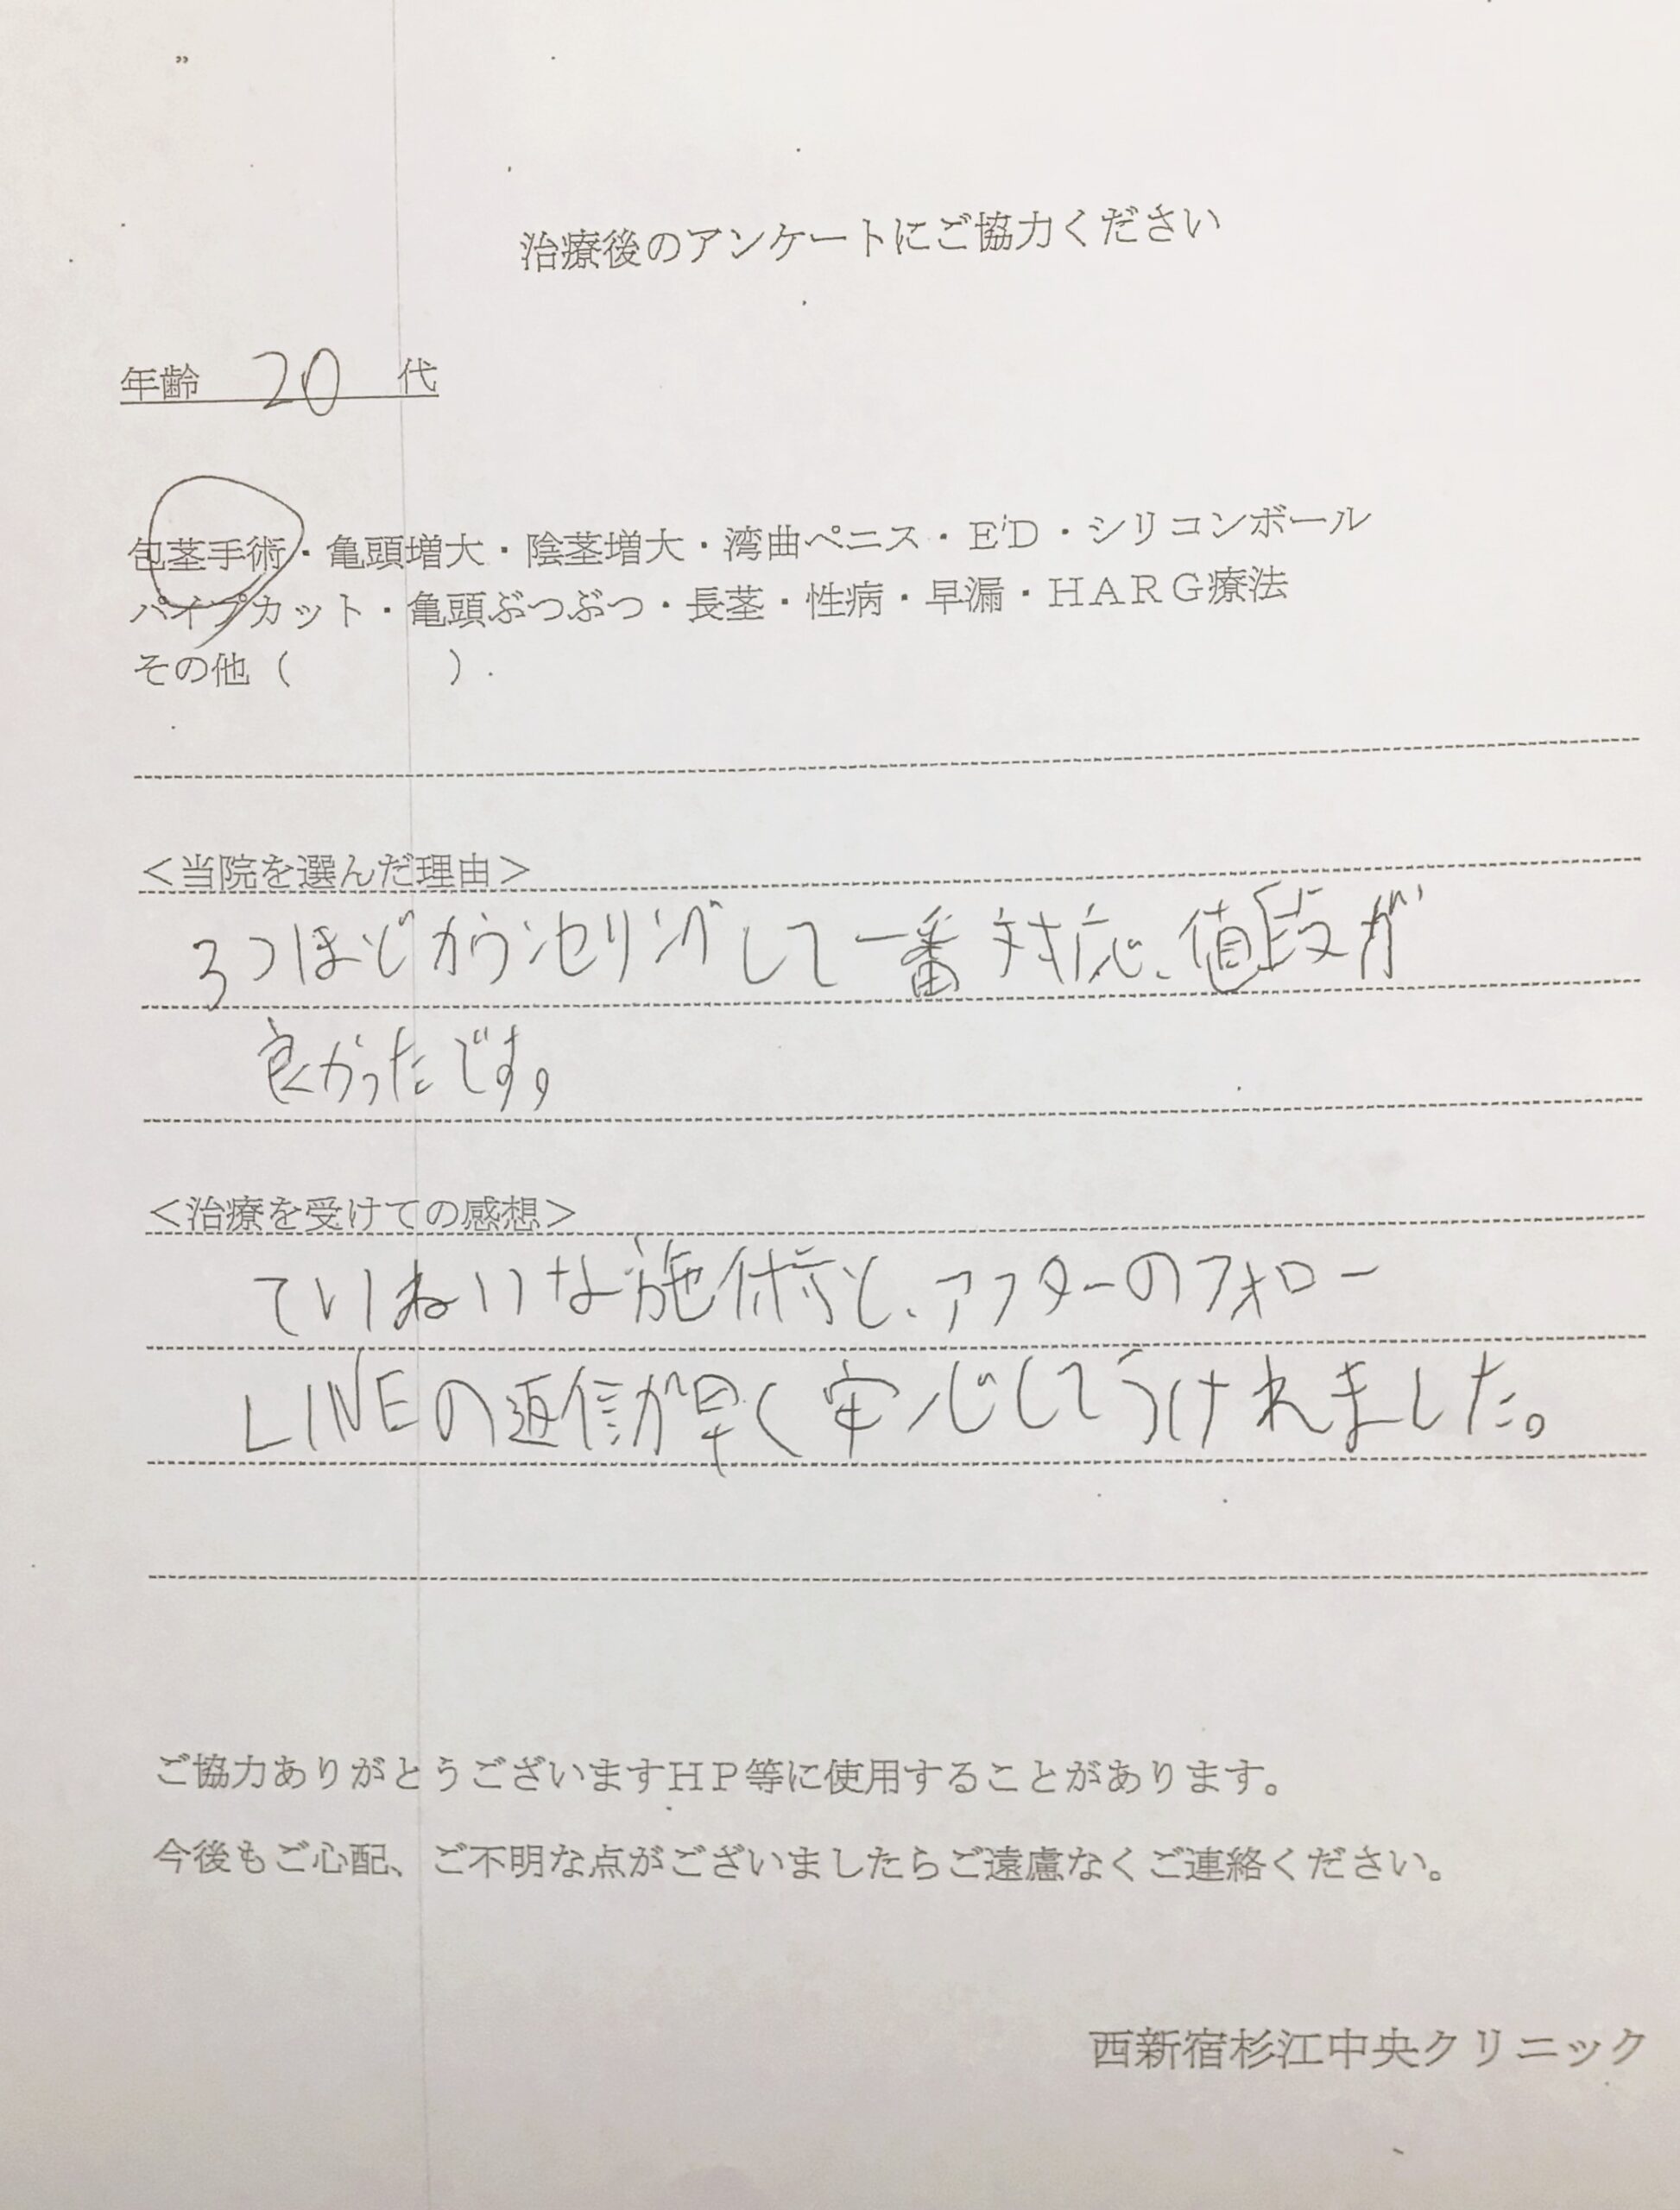 治療後のアンケートにご協力ください
年齢 20 代
包茎手術・亀頭増大・陰茎増大・湾曲ペニス・ED・シリコンボール
パイプカット・亀頭ぶつぶつ・長茎・性病・早漏・HARG療法
その他（　　　　）
＜当院を選んだ理由＞
3つほどカウンセリングして一番対応、値段が
良かったです。
＜治療を受けての感想＞
ていねいな施術と、アフターのフォロー
LINEの返信が早く安心してうけれました。
ご協力ありがとうございますHP等に使用することがあります。
今後もご心配、ご不明な点がございましたらご遠慮なくご連絡ください。
西新宿杉江中央クリニック